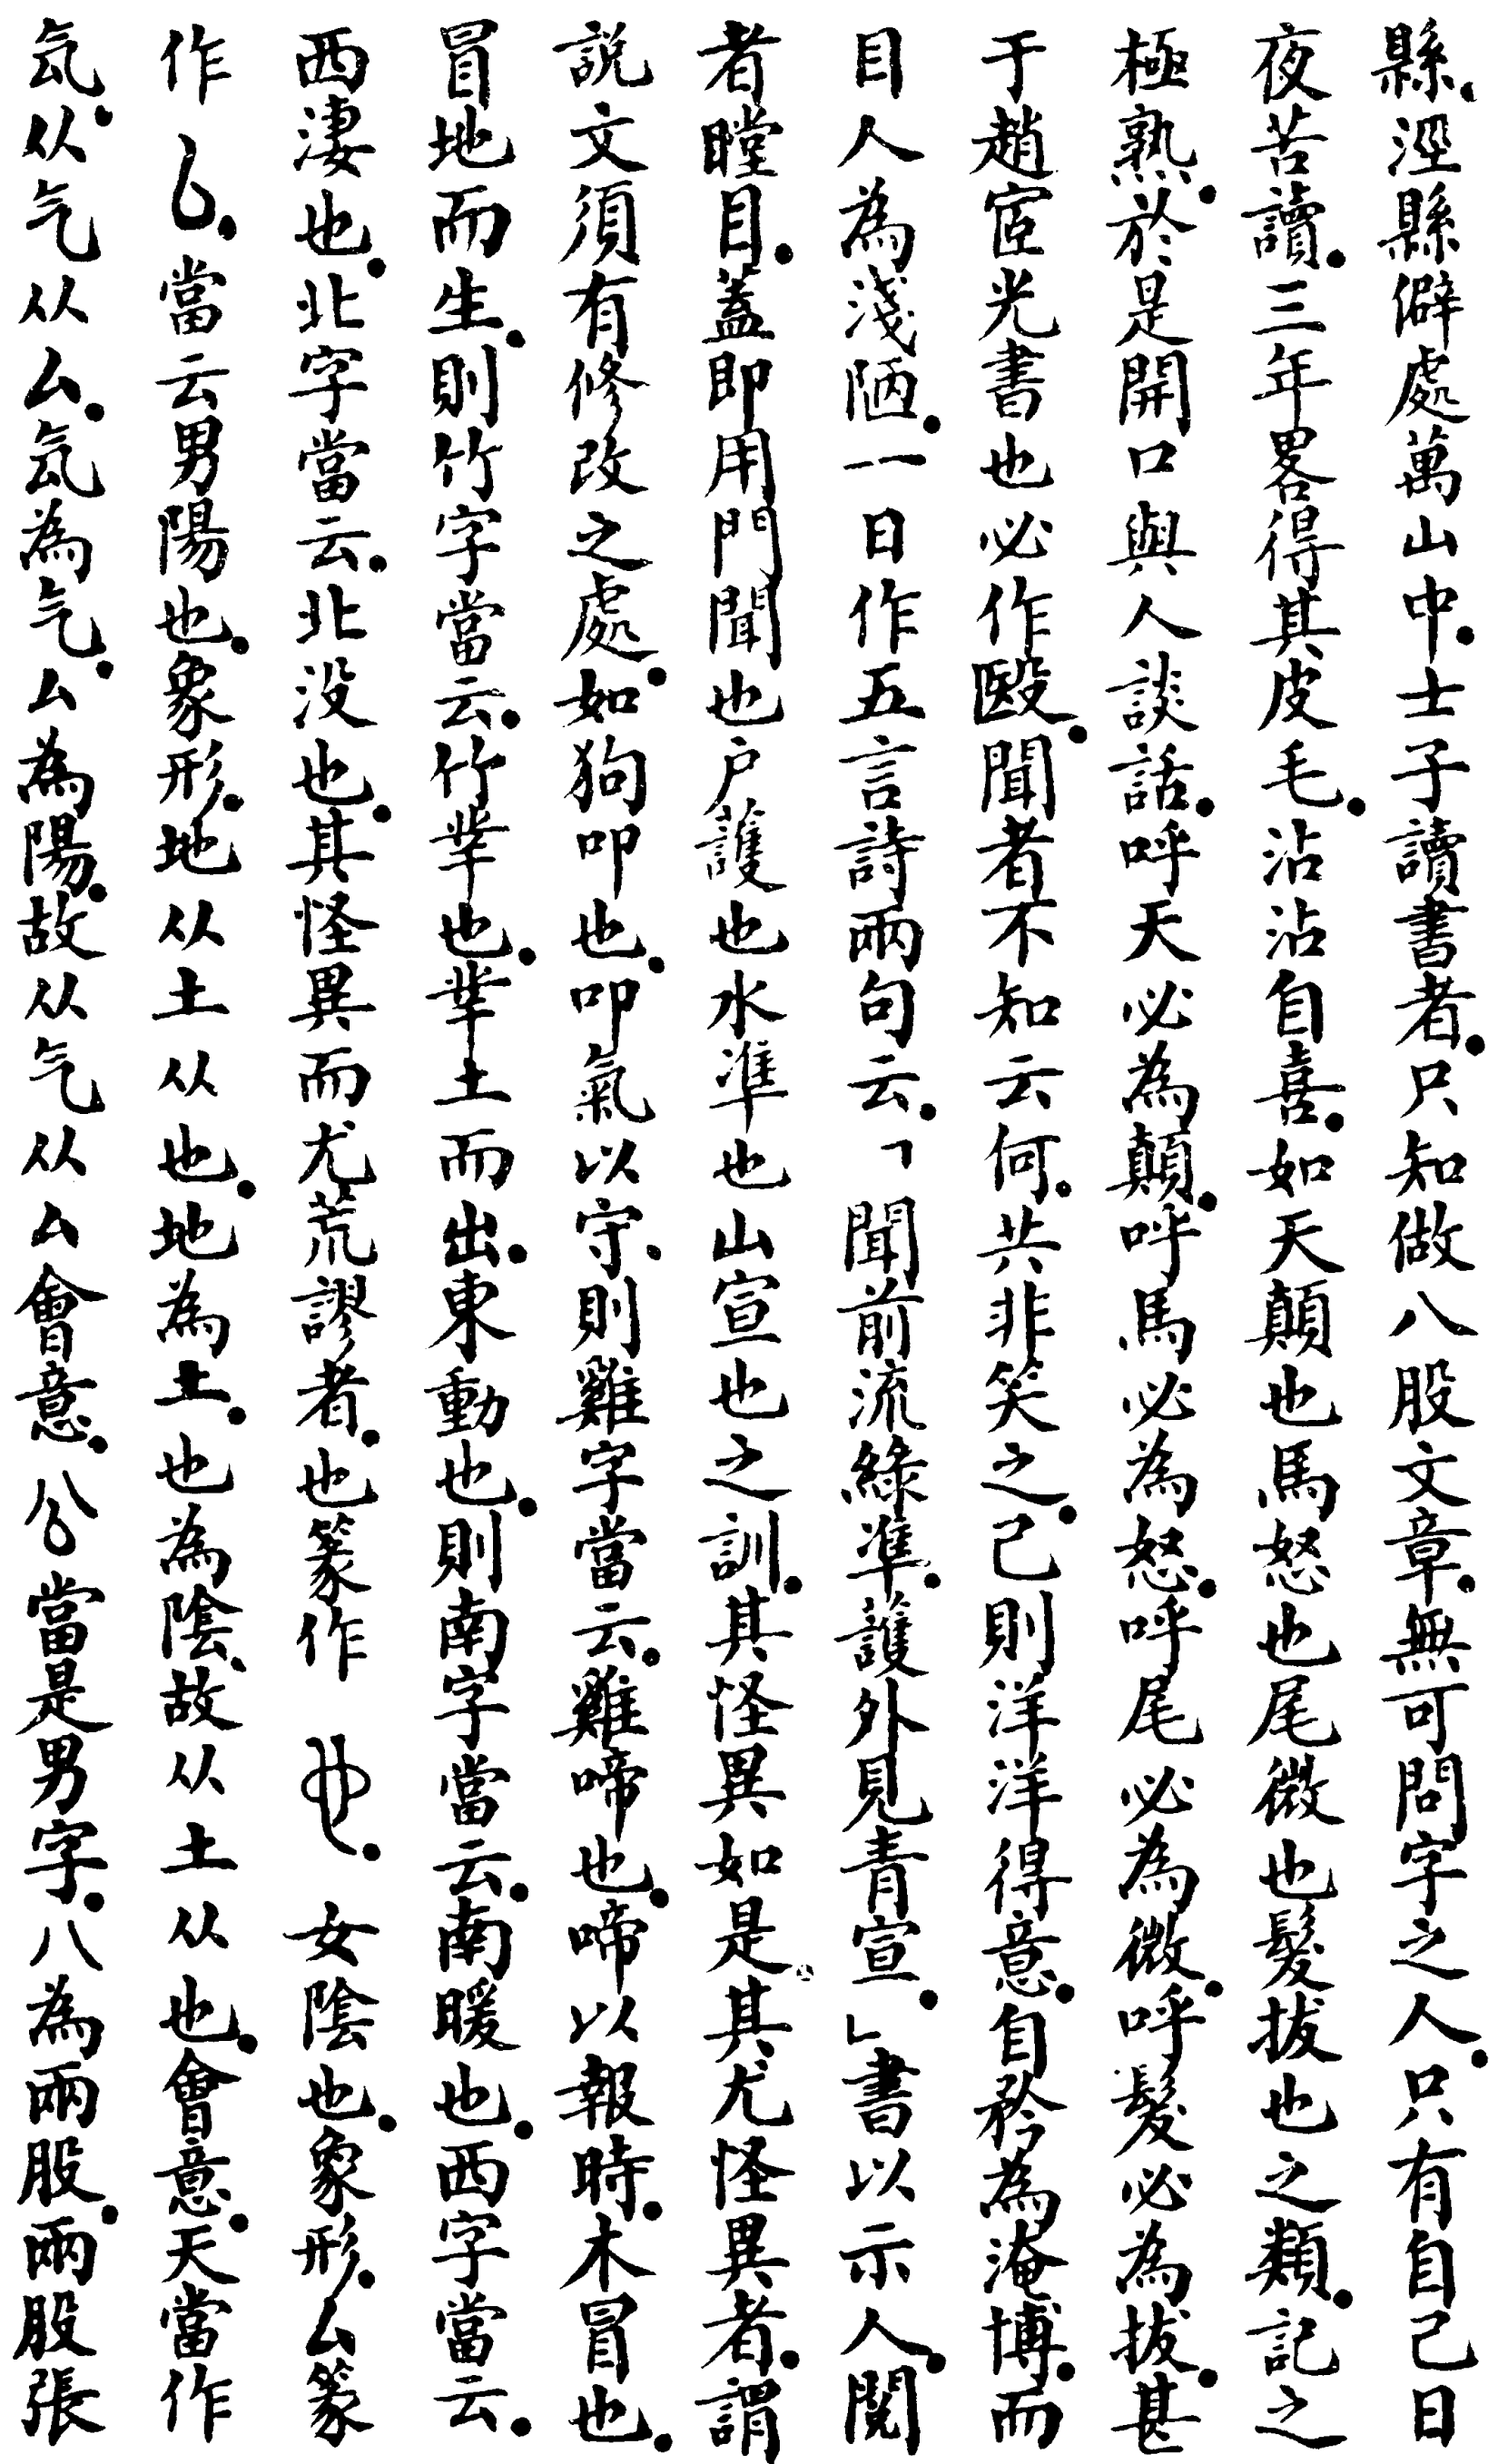 縣、涇縣僻處萬山中.士子讀書者.只知做八股文章.無可問字之人.只有自己日
夜苦讀.三年畧得其皮毛.沾沾自喜.如天顛也馬怒也尾微也髮拔也之類.記之
極熟.於是開口與人談話.呼天必為顛.呼馬必為怒.呼尾必為微.呼髮必為拔.甚
于趙宧光書也必作毉.聞者不知云何.共非笑之.己則洋洋得意.自矜為淹博.而
目人為淺陋.一日作五言詩兩句云.「聞前流綠準.護外見青宣.」書以示人.閱
者瞠目.蓋即用門聞也户護也水準也山宣也之訓.其怪異如是.其尤怪異者.謂
說文須有修改之處.如狗叩也.叩氣以守.則雞字當云.雞啼也.啼以報時.木冒也.
冒地而生.則竹字當云.竹茟也.茟土而出.東動也.則南字當云.南暖也.西字當云.
西淒也.北字當云.北没也.其怪異而尤荒謬者.也篆作𠃟.女陰也.象形.厶篆
作𠫔.當云男陽也.象形.地从土从也.地為土.也為陰.故从土从也.會意.天當作
気.从气从厶.気為气.厶為陽.故从气从厶會意.公當是男字.八為兩股.兩股張